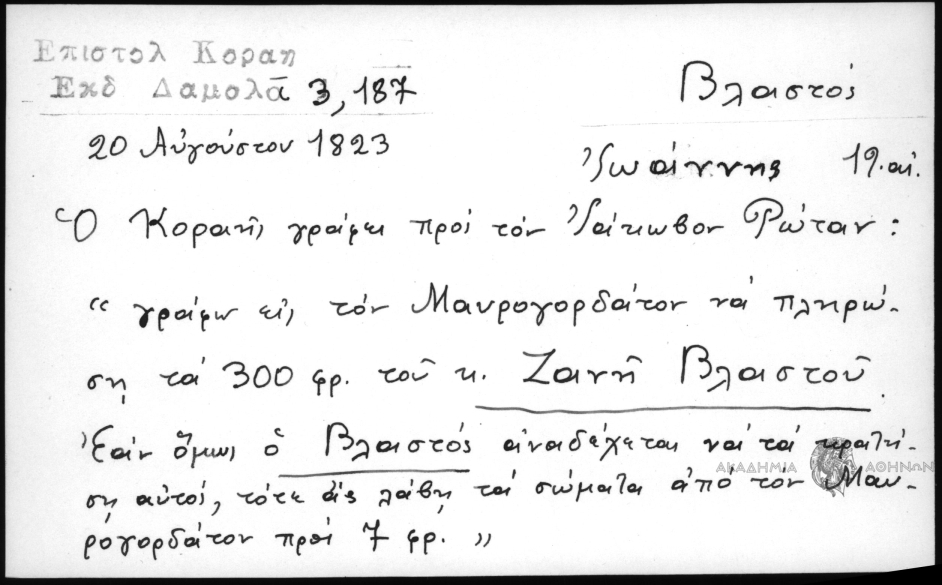 Επιστολ Κοραη
Εκδ Δαμολᾶ 3, 187
Βλαστός
20 Αὐγούστου 1823
Ἰωάννης 19. αἰ.
Ὁ Κοραῆς γράφει πρός τόν Ἰάκωβον Ρώταν :
“ γράφω εἰς τόν Μαυρογορδάτον νά πληρώ-
σῃ τά 300 φρ. τοῦ κ. Ζανῆ Βλαστοῦ
Ἐάν ὅμως ὁ Βλαστός ἀναδέχεται νά τά κρατή-
σῃ αὐτός, τότε ἄς λάβῃ τά σώματα ἀπό τόν Μαυ-
ρογορδάτον πρός 7 φρ. ”
ΑΚΑΔΗΜΙΑ ΑΘΗΝΩΝ